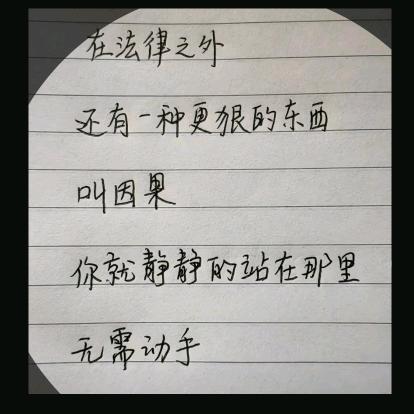 在法律之外
还有一种更狠的东西
叫因果
你就静静的站在那里
无需动手